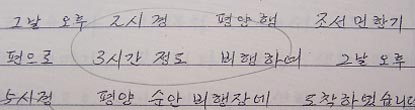 그날 오후 2시경 평양행 조선민항기
편으로 3시간 정도 비행하여 그날 오후
5시경 평양 순안 비행장에 도착하였습니다